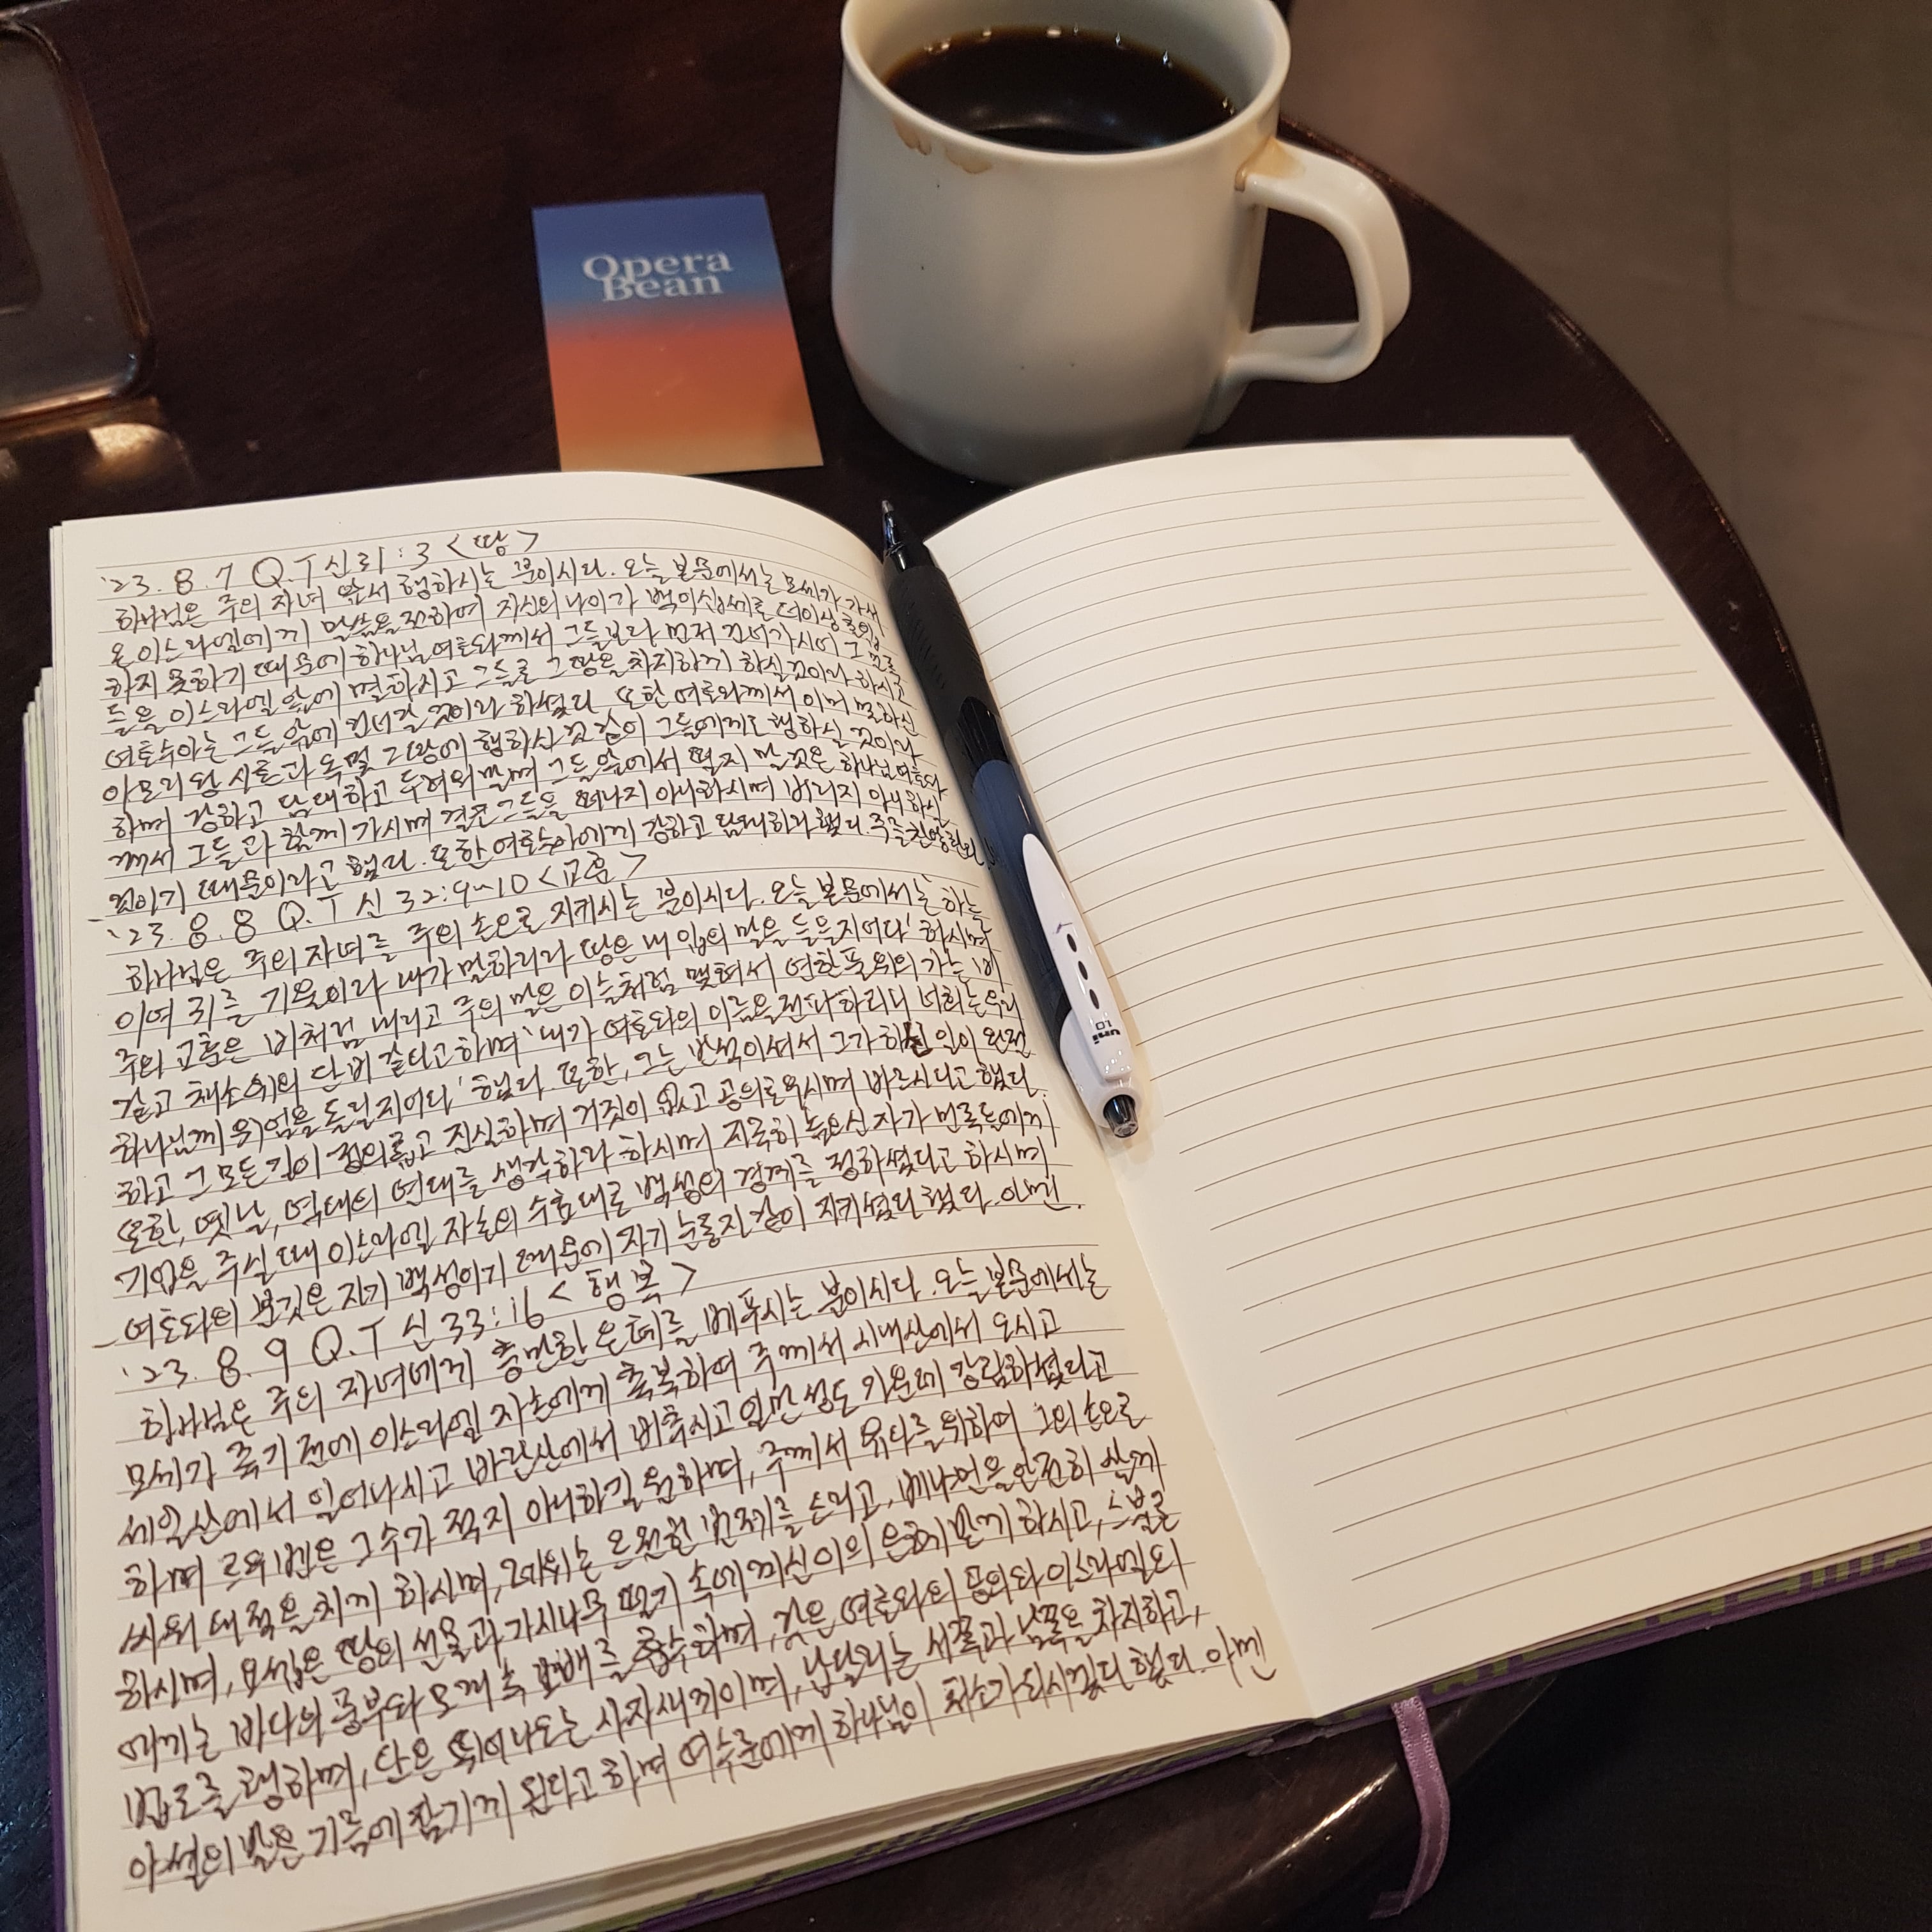 Opera
Bean
'23. 8. 7 Q.T 신 31:3 <땅>
하나님은 주의 자녀 앞서 행하시는 분이시다. 오늘 본문에서는 모세가 가서
온 이스라엘에게 말씀을 전하여 자신의 나이가 백이십세로 더이상 출입
하지 못하기 때문에 하나님 여호와께서 그들보다 먼저 건너가시어 그
들을 이스라엘 앞에 멸하시고 그들로 그 땅을 차지하게 하실것이라 하시고
여호수아는 그들 앞에 건너갈 것이라 하셨다. 또한 여호와께서 이미 멸하신
아모리 왕 시혼과 옥및 그 땅에 행하신 것 같이 그들에게도 행하실 것이라
하며 강하고 담대하고 두려워 말며 그들 앞에서 떨지 말 것은 하나님 여호와
께서 그들과 함께 가시며 결코 그들을 떠나지 아니하시며 버리지 아니하실
것이기 때문이라고 했다. 또한 여호수아에게 강하고 담대하라 했다. 주를
'23. 8. 8 Q.T 신 32:9~10 <교훈>
하나님은 주의 자녀를 주의 손으로 지키시는 분이시다. 오늘 본문에서는 하늘
이여 귀를 기울이라 내가 말하리라 땅은 내 입의 말을 들을지어다' 하시며
주의 교훈은 비처럼 내리고 주의 말은 이슬처럼 맺혀서 연한풀위의 가는 비
같고 채소위의 단비 같다고 하며 '내가 여호와의 이름을 전파하리니 너희는 우리
하나님께 위엄을 돌릴지어다' 했다. 또한, 그는 반석이셔서 그가 하신 일이 완전
하고 그 모든 길이 정의롭고 진실하며 거짓이 없고 공의로우시며 바르시다고 했다.
또한, 옛날, 역대의 연대를 생각하라 하시며 지극히 높으신 자가 민족들에게
기업을 주실 때 이스라엘 자손의 수효대로 백성의 경계를 정하셨다고 하시며
여호와의 분깃은 자기 백성이기 때문에 자기 눈동자 같이 지키셨다 했다. 아멘.
'23. 8. 9 Q.T 신 33:16 <행복>
하나님은 주의 자녀에게 충만한 은혜를 베푸시는 분이시다. 오늘 본문에서는
모세가 죽기 전에 이스라엘 자손에게 축복하여 주께서 시내산에서 오시고
세일산에서 일어나시고 바란산에서 비추시고 일만 성도 가운데 강림하셨다고
하며 르우벤은 그 수가 적지 아니하길 원하며, 주께서 유다를 위하여 그의 손으로
싸워 대적을 치게 하시며, 레위는 온전한 번제를 드리고, 베냐민을 안전히 살게
하시며, 요셉은 땅의 선물과 가시나무 떨기 속에 계신이의 은혜 받게 하시고, 스불론
에게는 바다의 풍부와 모래 속 보배를 흡수하며, 갓은 여호와의 공의와 이스라엘의
법도를 행하며, 단은 뛰어나오는 사자새끼이며, 납달리는 서쪽과 남쪽을 차지하고,
아셀의 발은 기름에 잠기게 된다고 하며 여수룬에게 하나님이 처소가 되시겠다 했다. 아멘
uni
1.0